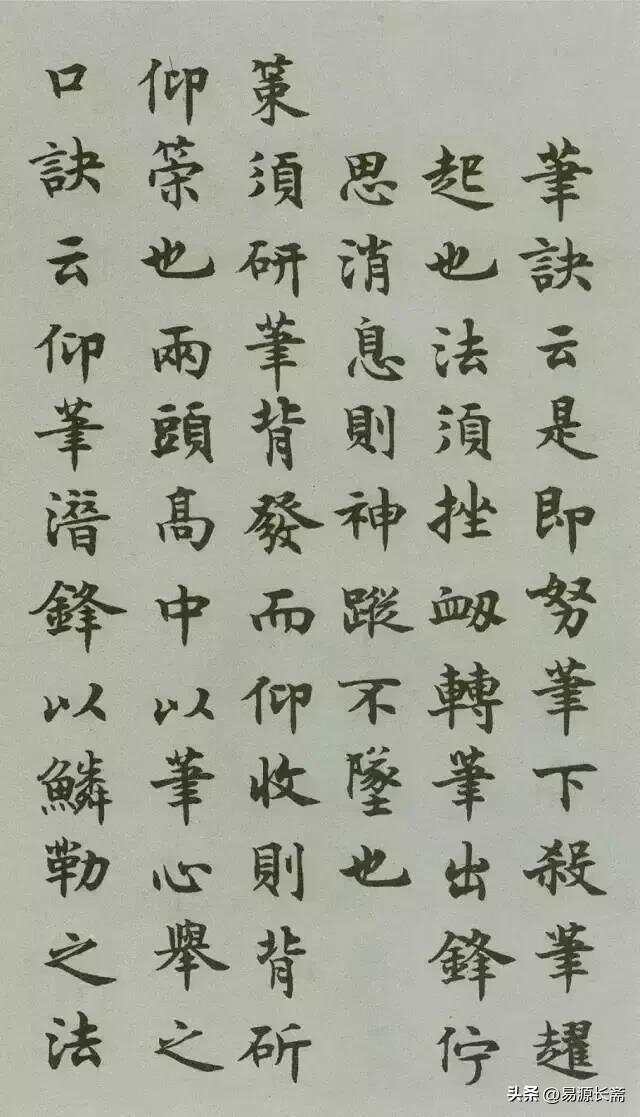 筆訣云是即努筆下殺筆趯
起也法須挫衂轉筆出鋒佇
思消息則神蹤不墜也
策須研筆背發而仰收則背斫
仰策也兩頭高中以筆心舉之
口訣云仰筆潛鋒以鱗勒之法
头条 @易源长斋